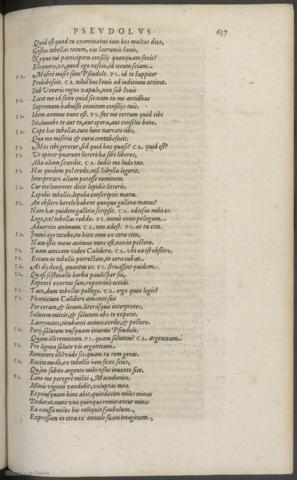 PSEVDOLVS 637
Quid est quod tu exanimatus iam hos multos dies,
Gestas tabellas tecum, eas lacrumis lauis,
Neque tui participem consilij quenquam facis?
Eloquere, ut, quod ego nescio, id tecum sciam.
CA. Misere miser sum Pseudole. PS. id te Iuppiter
Prohibessit. CA. nihil hoc Iouis ad iudicium attinet.
Sub Veneris regno uapulo, non sub Iouis
PS. Licet me id scire quid sit: nam tu me antidhac
Supremum habuisti comitem consiliis tuis.
CA. Idem animus nunc est. PS. fac me certum quid tibi
Sit, iuuabo te aut re, aut opera, aut consilio bono.
CA. Cape has tabellas, tute hinc narrato tibi,
Quæ me miseria & cura contabefacit.
PS. Mos tibi geretur, sed quid hoc quæso? CA. quid est?
PS. Ut opinor quærunt literæ hæ sibi liberos,
Alia aliam scandit. CA. ludis me ludo tuo.
PS. Has quidem pol credo, nisi Sibylla legerit,
Interpretari alium potesse neminem.
CA. Cur inclementer dicis lepidis litteris,
Lepidis tabellis, lepida conscriptis manu.
PS. An obsecro hercle habent quoque gallinæ manus?
Nam has quidem gallina scripsit. CA. odiosus mihi es.
Lege, uel tabellas redde. PS. immò enim pellegam.
Aduortito animum. CA. non adest. PS. at tu cita.
CA. Immò ego tacebo, tu hinc eum ex cera cita,
Nam istic meus animus nunc est, non in pectore.
PS. Tuam amicam video Calidore. CA. ubi ea est obsecro,
PS. Eccam in tabellis porrectam, in cera cubat.
CA. At te deæq́; quantus es. PS. seruassint quidem.
CA. Quasi solstitialis herba paulisper fui,
Repente exortus sum, repentino occidi.
PS. Tace, dum tabellas pellego. CA. ergo quin legis?
PS. Phœnicium Calidoro amatori suo
Per ceram, & linum, literasque interpretes,
Salutem mittit, & salutem abs te expetit,
Lacrymans, titubanti animo, corde, & pectore.
CA. Perij, salutem nusquam inuenio Pseudole,
Quam illi remittam. PS. quam salutem? CA. argenteam.
PS. Pro lignea salute vis argenteam
Remittere illi? vide sis, quam tu rem geras.
CA. Recita modò, ex tabellis iam faxo scies,
Quàm subito argento mihi vsus inuento siet.
PS. Leno me peregre militi Macedonio,
Minis viginti vendidit, voluptas mea.
Et priusquam hinc abit, quindecim miles minas
Dederat, nunc vnæ quinque remorantur minæ.
Ea caussa miles hic reliquit symbolum,
Expressam in cera ex annulo suam imaginem,